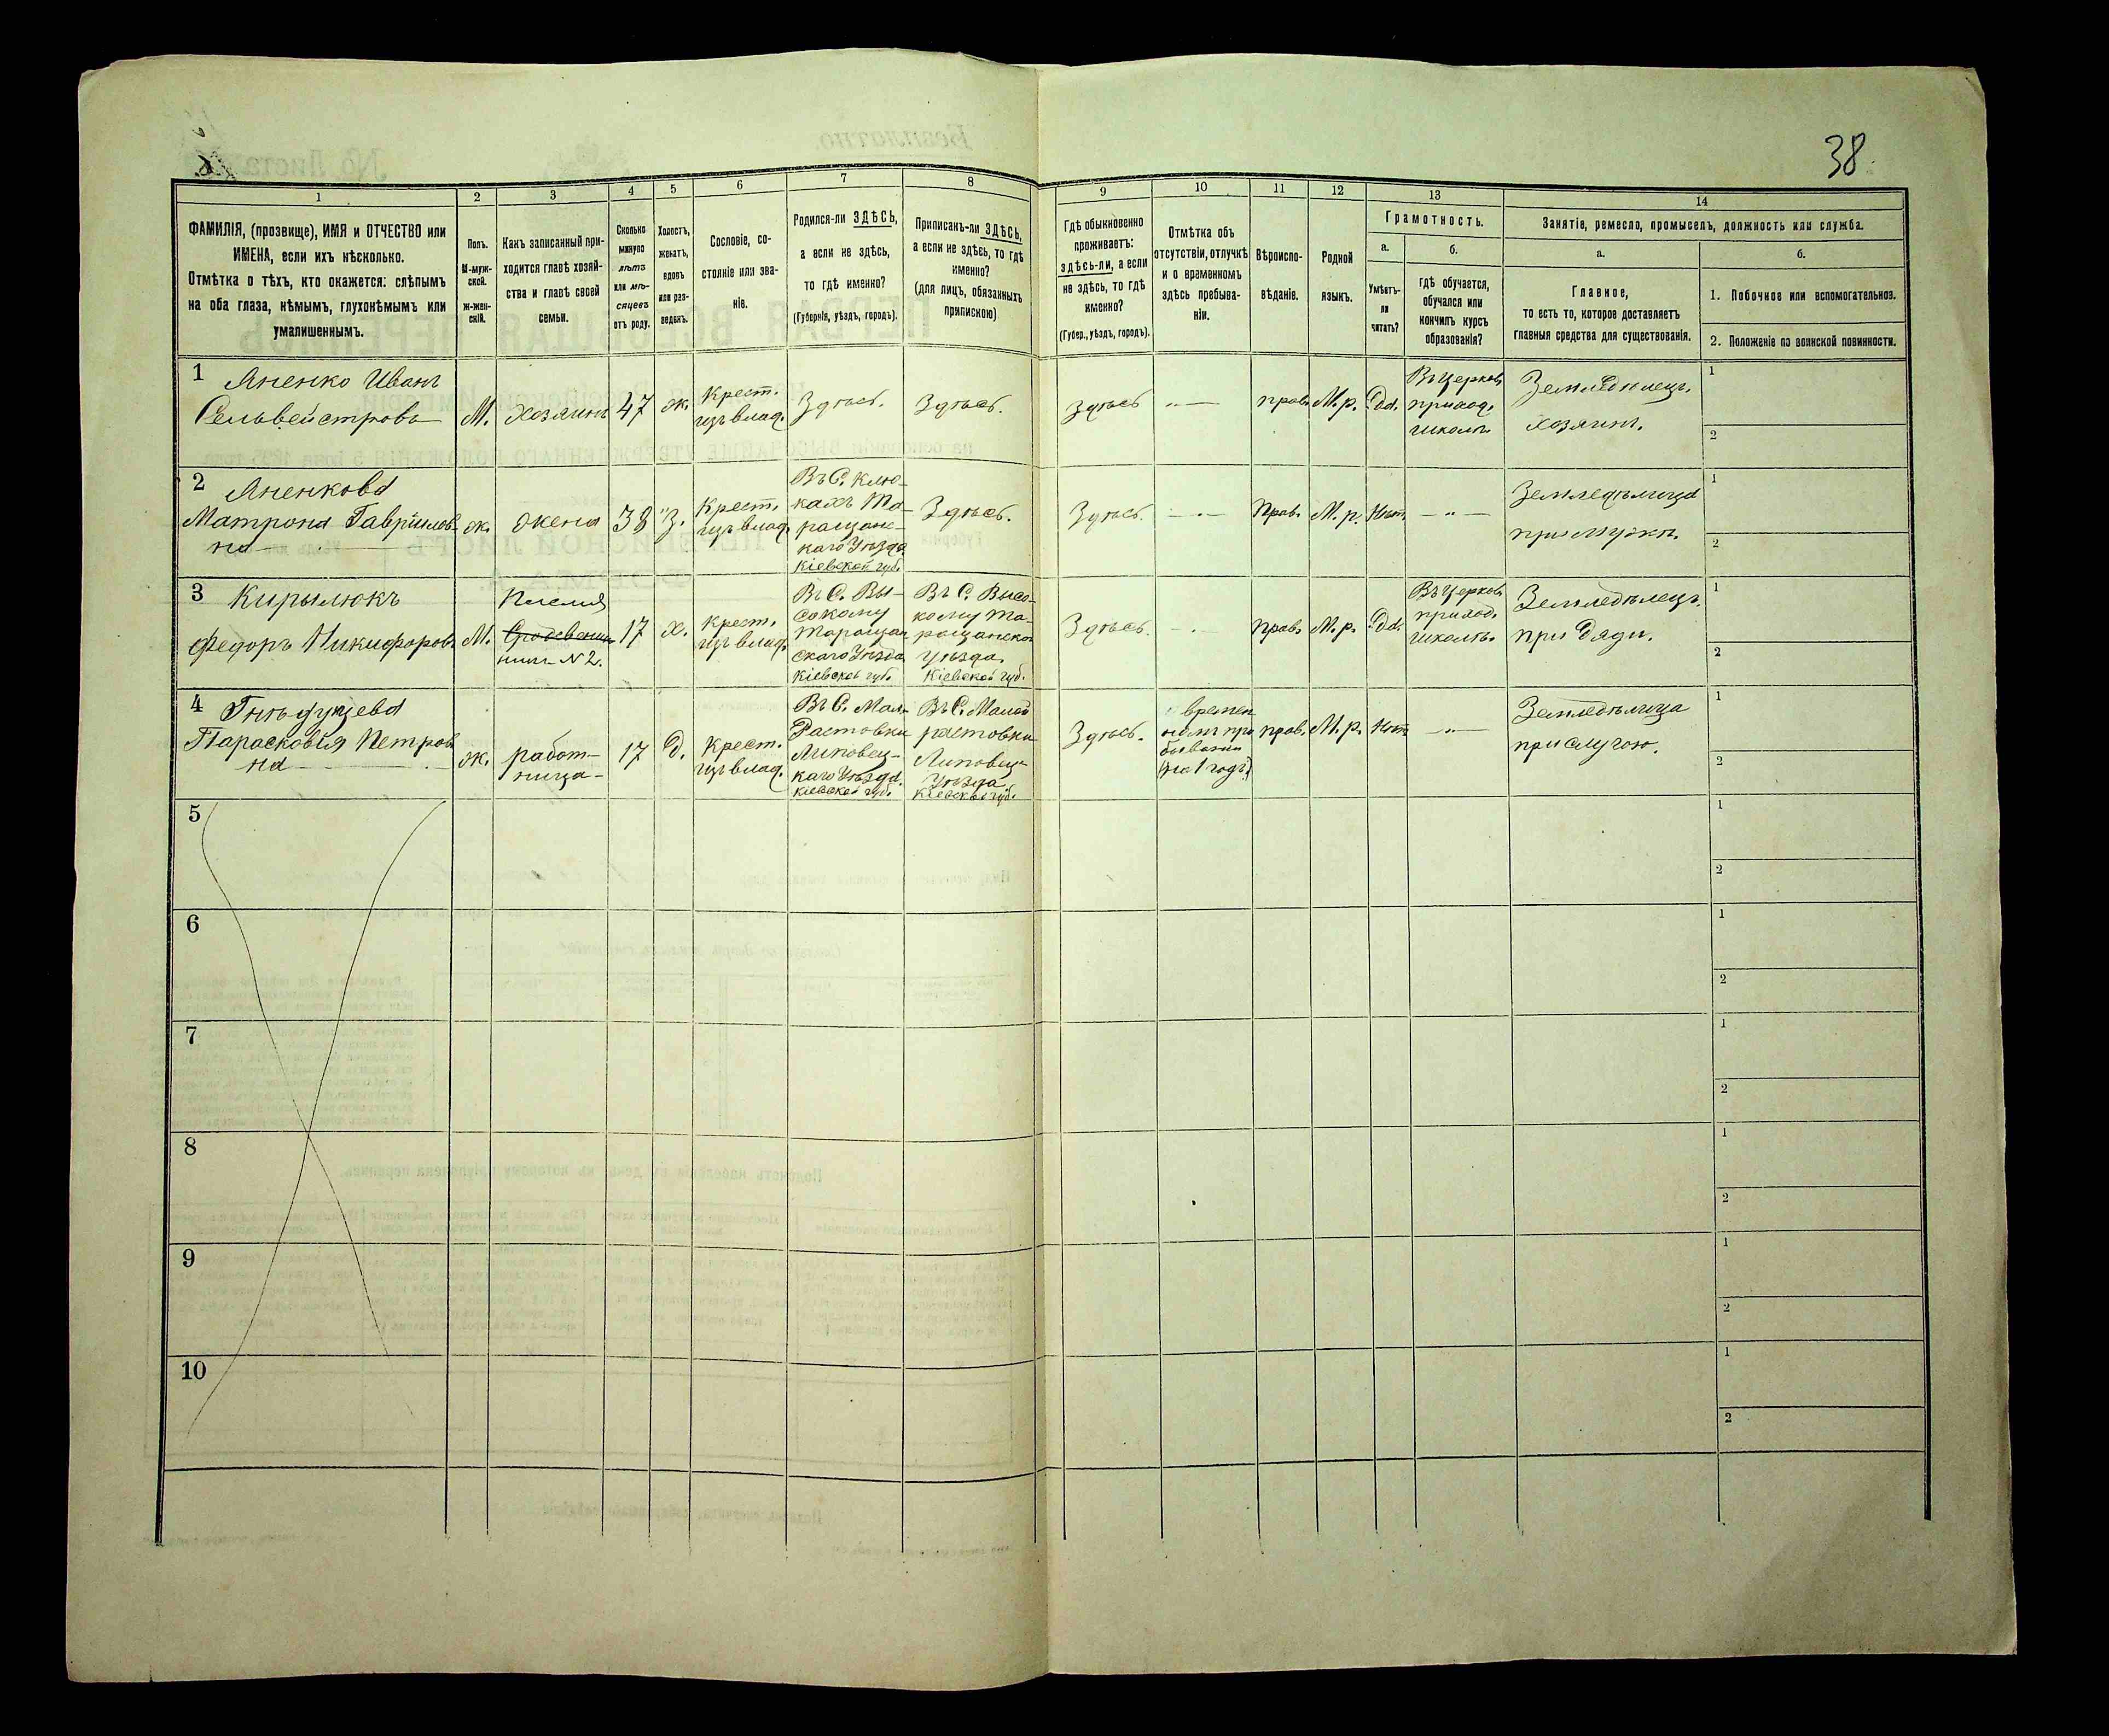 38.
1
2
3
4
5
6
7
8
9
10
11
12
13
14
ФАМИЛІЯ, (прозвище), ИМЯ и ОТЧЕСТВО или
ИМЕНА, если ихъ нѣсколько.
Отмѣтка о тѣхъ, кто окажется: слѣпымъ
на оба глаза, нѣмымъ, глухонѣмымъ или
умалишеннымъ.
Полъ.
М-муж-
ской.
Ж-жен-
скій.
Какъ записанный при-
ходится главѣ хозяй-
ства и главѣ своей
семьи.
Сколько
минуло
лѣтъ
или мѣ-
сяцевъ
отъ роду.
Холостъ,
женатъ,
вдовъ
или раз-
веденъ.
Сословіе, со-
стояніе или зва-
ніе.
Родился-ли ЗДѢСЬ,
а если не здѣсь,
то гдѣ именно?
(Губернія, уѣздъ, городъ).
Приписанъ-ли ЗДѢСЬ,
а если не здѣсь, то гдѣ
именно?
(для лицъ, обязанныхъ
припискою)
Гдѣ обыкновенно
проживаетъ:
здѣсь-ли, а если
не здѣсь, то гдѣ
именно?
(Губер., уѣздъ, городъ).
Отмѣтка объ
отсутствіи, отлучкѣ
и о временномъ
здѣсь пребыва-
ніи.
Вѣроиспо-
вѣданіе.
Родной
языкъ.
Грамотность.
а.
Умѣетъ-
ли
читать?
б.
Гдѣ обучается,
обучался или
кончилъ курсъ
образованія?
Занятіе, ремесло, промыселъ, должность или служба.
а.
Главное,
то есть то, которое доставляетъ
главныя средства для существованія.
б.
1. Побочное или вспомогательное.
2. Положеніе по воинской повинности.
1
Яненко Иванъ
Сельвейстровъ
М.
хозяинъ
47
ж.
Крест.
изъ влад.
Здѣсь.
Здѣсь.
Здѣсь
прав.
М.р.
Да.
Въ церков.
приход.
школѣ.
Земледѣлецъ.
хозяинъ.
1
2
2
Яненкова
Матрона Гавриилов-
на
ж.
жена
38
З.
Крест.
изъ влад.
Въ С. Клю-
кахъ Та-
ращанс-
каго Уѣзда
Кіевской губ.
Здѣсь.
Здѣсь.
Прав.
М.р.
Нѣтъ
Земледѣлица
при мужѣ.
1
2
3
Кирылюкъ
Федоръ Никифоровъ
М.
17
х.
Крест.
изъ влад.
Въ С. Вы-
сокому
Таращан
скаго Уѣзда
Кіевской губ.
Въ С. Высо-
кому Та-
ращанско
Уѣзда.
Кіевской губ.
Здѣсь.
прав.
М.р.
Да.
Въ церков
приход.
школѣ.
Земледѣлецъ.
при Дяди.
1
2
4
Парасковія Петров
на
ж.
работ-
ница
17
Д.
Крест.
изъ влад.
Въ С. Мал.
Растовки
Липовец-
каго Уѣзда.
Кіевской губ.
Въ С. Малой
растовки
Липовец-
Уѣзда.
Кіевской губ.
Здѣсь.
времен
номъ пре
бываніи
(на 1 годъ)
прав.
М.р.
Нѣтъ
Земледѣлица
прислугою.
1
2
5
1
2
6
1
2
7
1
2
8
1
2
9
1
2
10
1
2